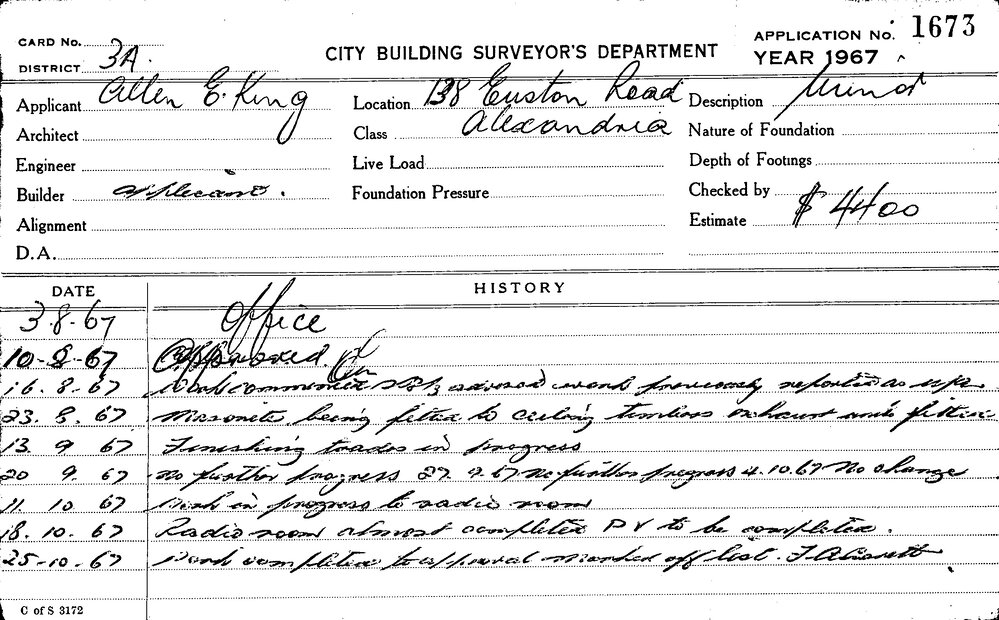 CARD No. 3A. CITY BUILDING SURVEYOR'S DEPARTMENT APPLICATION No. 1673
DISTRICT YEAR 1967
Applicant Allen E. King Location 138 Euston Road Description Minor
Architect Class Alexandria Nature of Foundation
Engineer Live Load Depth of Footings
Builder applicant. Foundation Pressure Checked by
Alignment Estimate $4400
D.A.
DATE HISTORY
3.8.67 Office
10-8-67 Approved.
16.8.67 Work commenced advised work previously reported as
23.8.67 Masonite being fitted to ceiling timbers exhaust units fitted
13 9 67 Finishing trades in progress
20 9. 67 No further progress 27.9.67 No further progress 4.10.67 No change
11 10 67 Work in progress to radio room
18.10.67 Radio room almost completed PV to be completed.
25-10-67 Work completed to approval marked off list.
C of S 3172